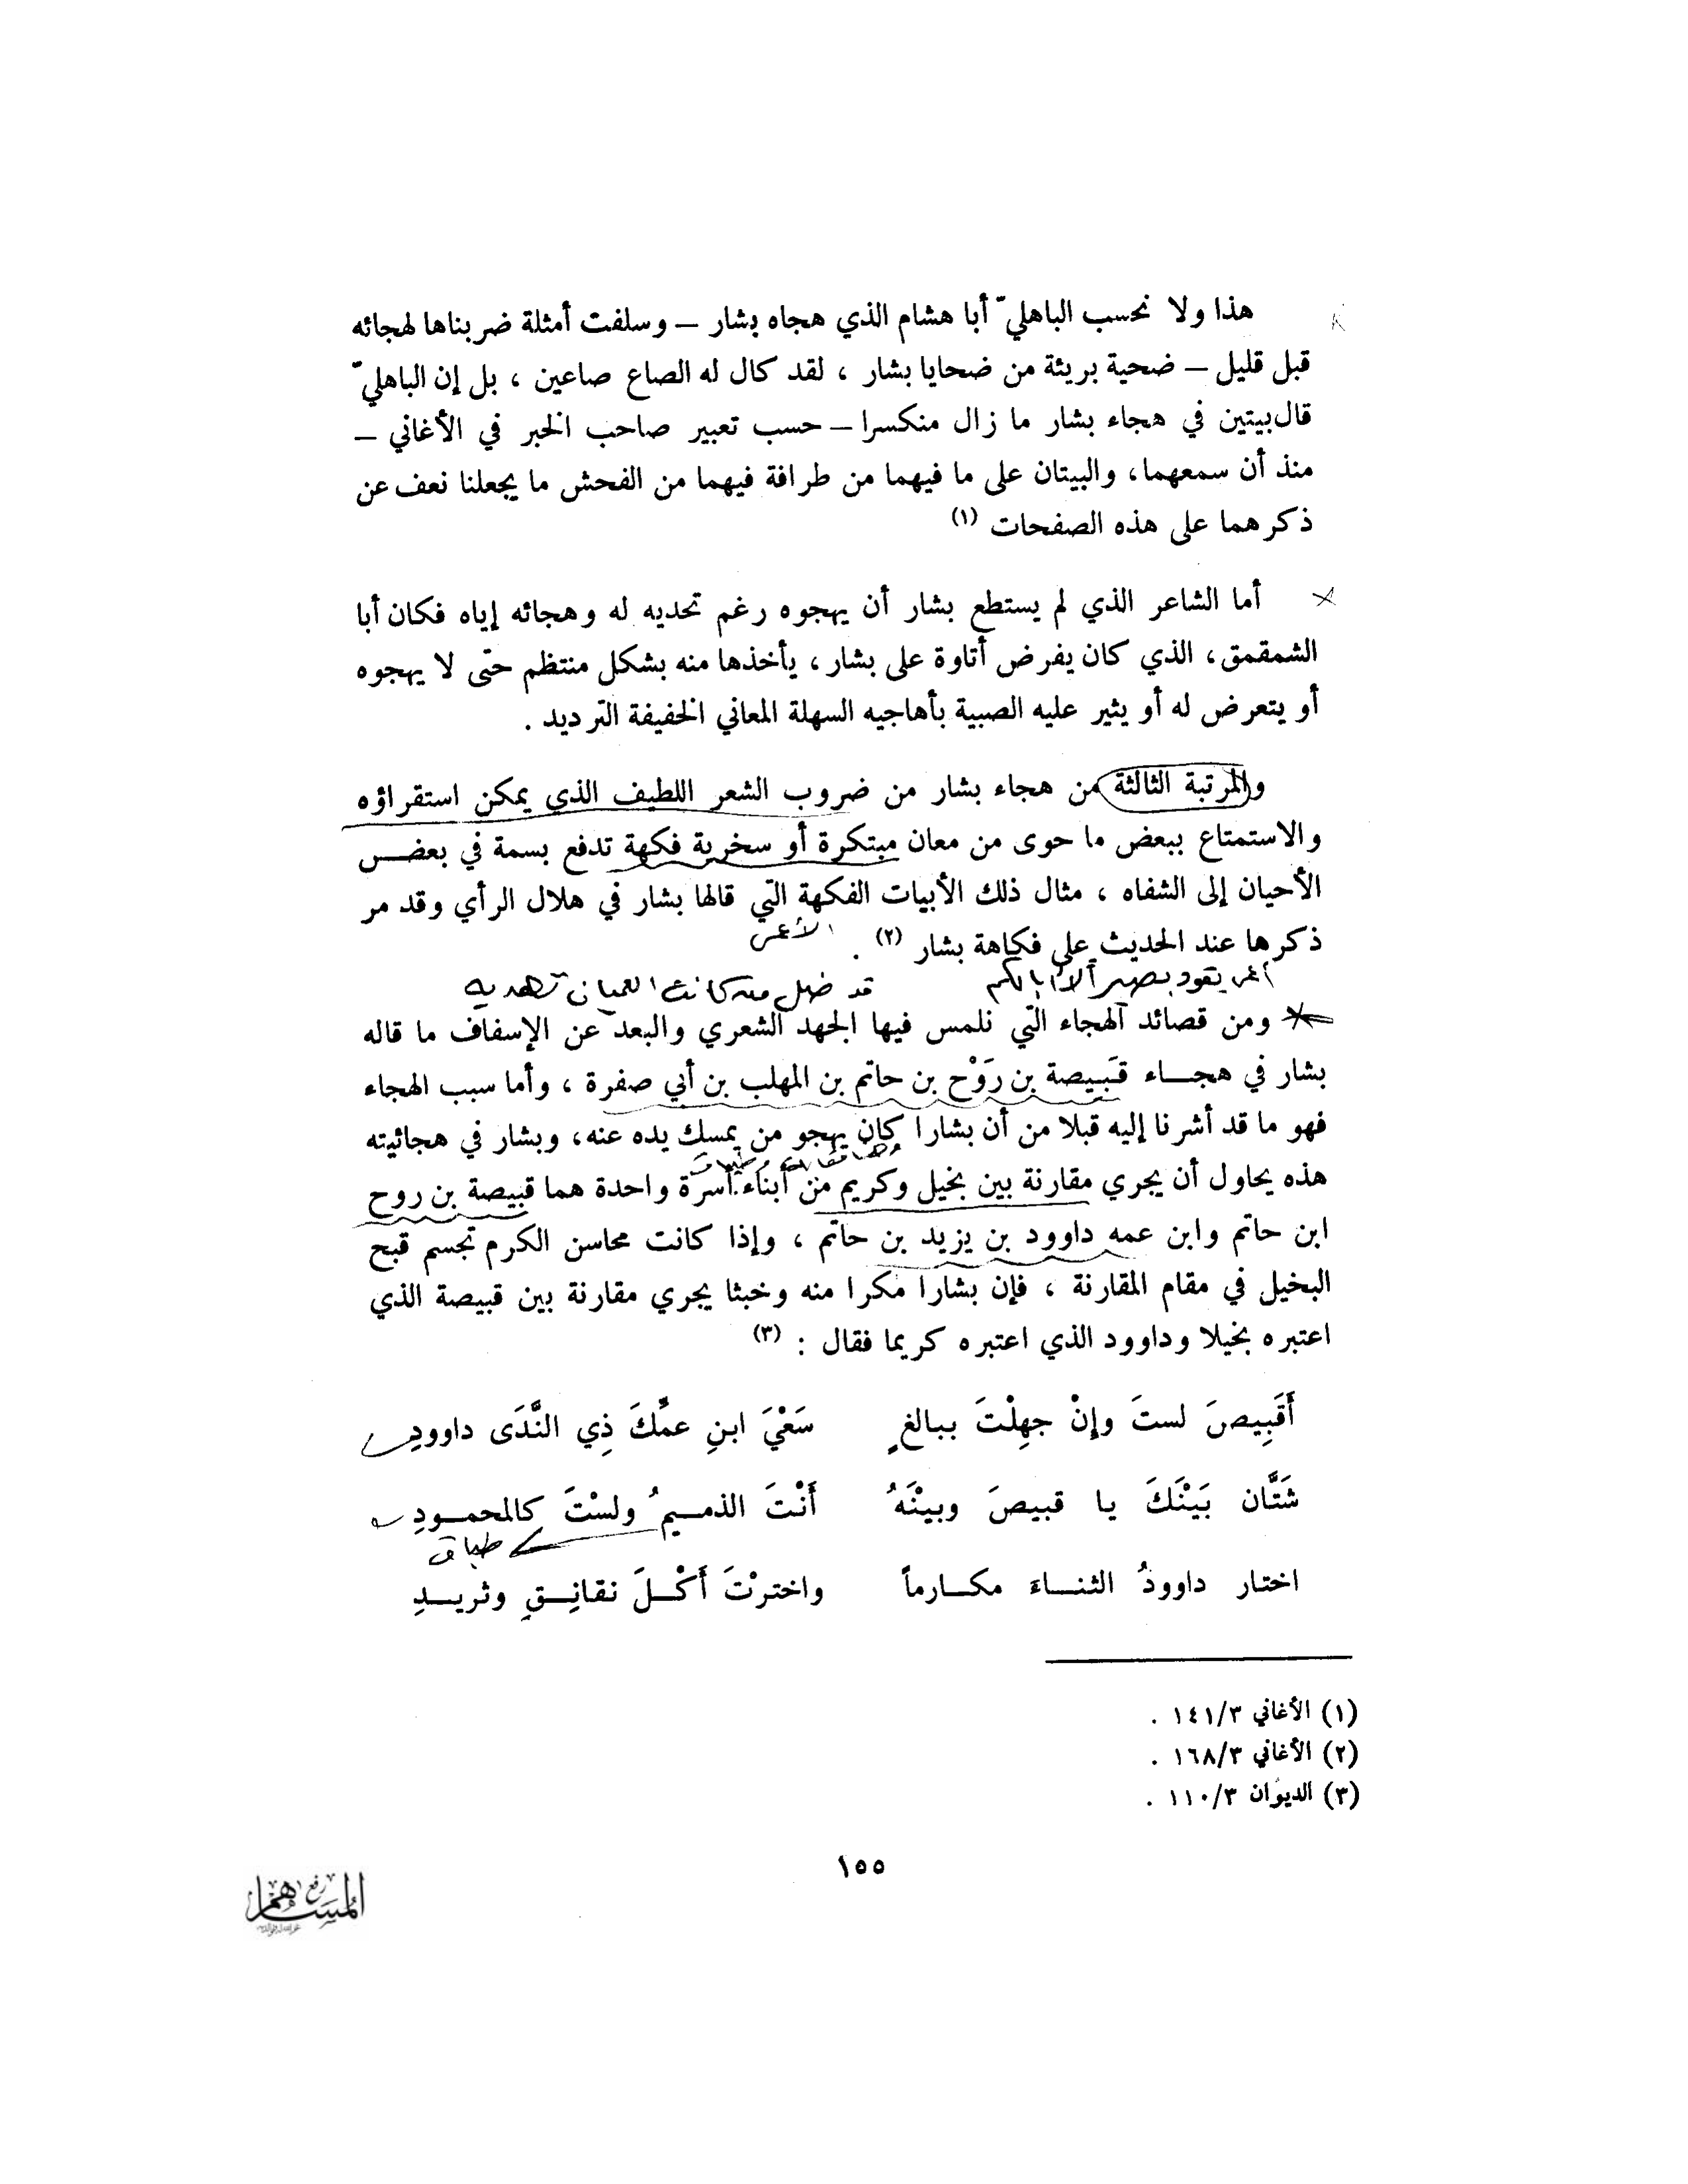 هذا ولا نحسب الباهليّ أبا هشام الذي هجاه بشار – وسلفت أمثلة ضربناها لهجائه
قبل قليل – ضحية بريئة من ضحايا بشار ، لقد كال له الصاع صاعين ، بل إن الباهليّ
قال بيتين في هجاء بشار ما زال منكسرا – حسب تعبير صاحب الخبر في الأغاني –
منذ أن سمعهما، والبيتان على ما فيهما من طرافة فيهما من الفحش ما يجعلنا نعف عن
ذكرهما على هذه الصفحات (١)
أما الشاعر الذي لم يستطع بشار أن يهجوه رغم تحديه له وهجائه إياه فكان أبا
الشمقمق، الذي كان يفرض أتاوة على بشار ، يأخذها منه بشكل منتظم حتى لا يهجوه
أو يتعرض له أو يثير عليه الصبية بأهاجيه السهلة المعاني الخفيفة الترديد .
والمرتبة الثالثة من هجاء بشار من ضروب الشعر اللطيف الذي يمكن استقراؤه
والاستمتاع ببعض ما حوى من معان مبتكرة أو سخرية فكهة تدفع بسمة في بعض
الأحيان إلى الشفاه ، مثال ذلك الأبيات الفكهة التي قالها بشار في هلال الرأي وقد مر
ذكرها عند الحديث على فكاهة بشار (٢) .
أعمى يقود بصيرا لا أبا لكم قد ضل من كانت العميان تهديه
ومن قصائد الهجاء التي نلمس فيها الجهد الشعري والبعد عن الإسفاف ما قاله
بشار في هجاء قَبِيصة بن رَوْح بن حاتم بن المهلب بن أبي صفرة ، وأما سبب الهجاء
فهو ما قد أشرنا إليه قبلا من أن بشارا كان يهجو من يمسك يده عنه، وبشار في هجائيته
هذه يحاول أن يجري مقارنة بين بخيل وكريم من أبناء أسرة واحدة هما قبيصة بن روح
ابن حاتم وابن عمه داوود بن يزيد بن حاتم ، وإذا كانت محاسن الكرم تجسم قبح
البخيل في مقام المقارنة ، فإن بشارا مكرا منه وخبثا يجري مقارنة بين قبيصة الذي
اعتبره بخيلا وداوود الذي اعتبره كريما فقال : (٣)
أَقَبِيصَ لستَ وإِنْ جهِلْتَ ببالغٍ سَعْيَ ابنِ عمِّكَ ذِي النَّدَى داوودِ
شَتَّان بَيْنَكَ يا قبيصَ وبيْنَهُ أَنْتَ الذميمُ ولسْتَ كالمحمودِ
طباق
اختار داوودُ الثناءَ مكارماً واخترْتَ أَكْلَ نقانِقٍ وثريدِ
(١) الأغاني ١٤١/٣ .
(٢) الأغاني ١٦٨/٣ .
(٣) الديوان ١١٠/٣ .
١٥٥